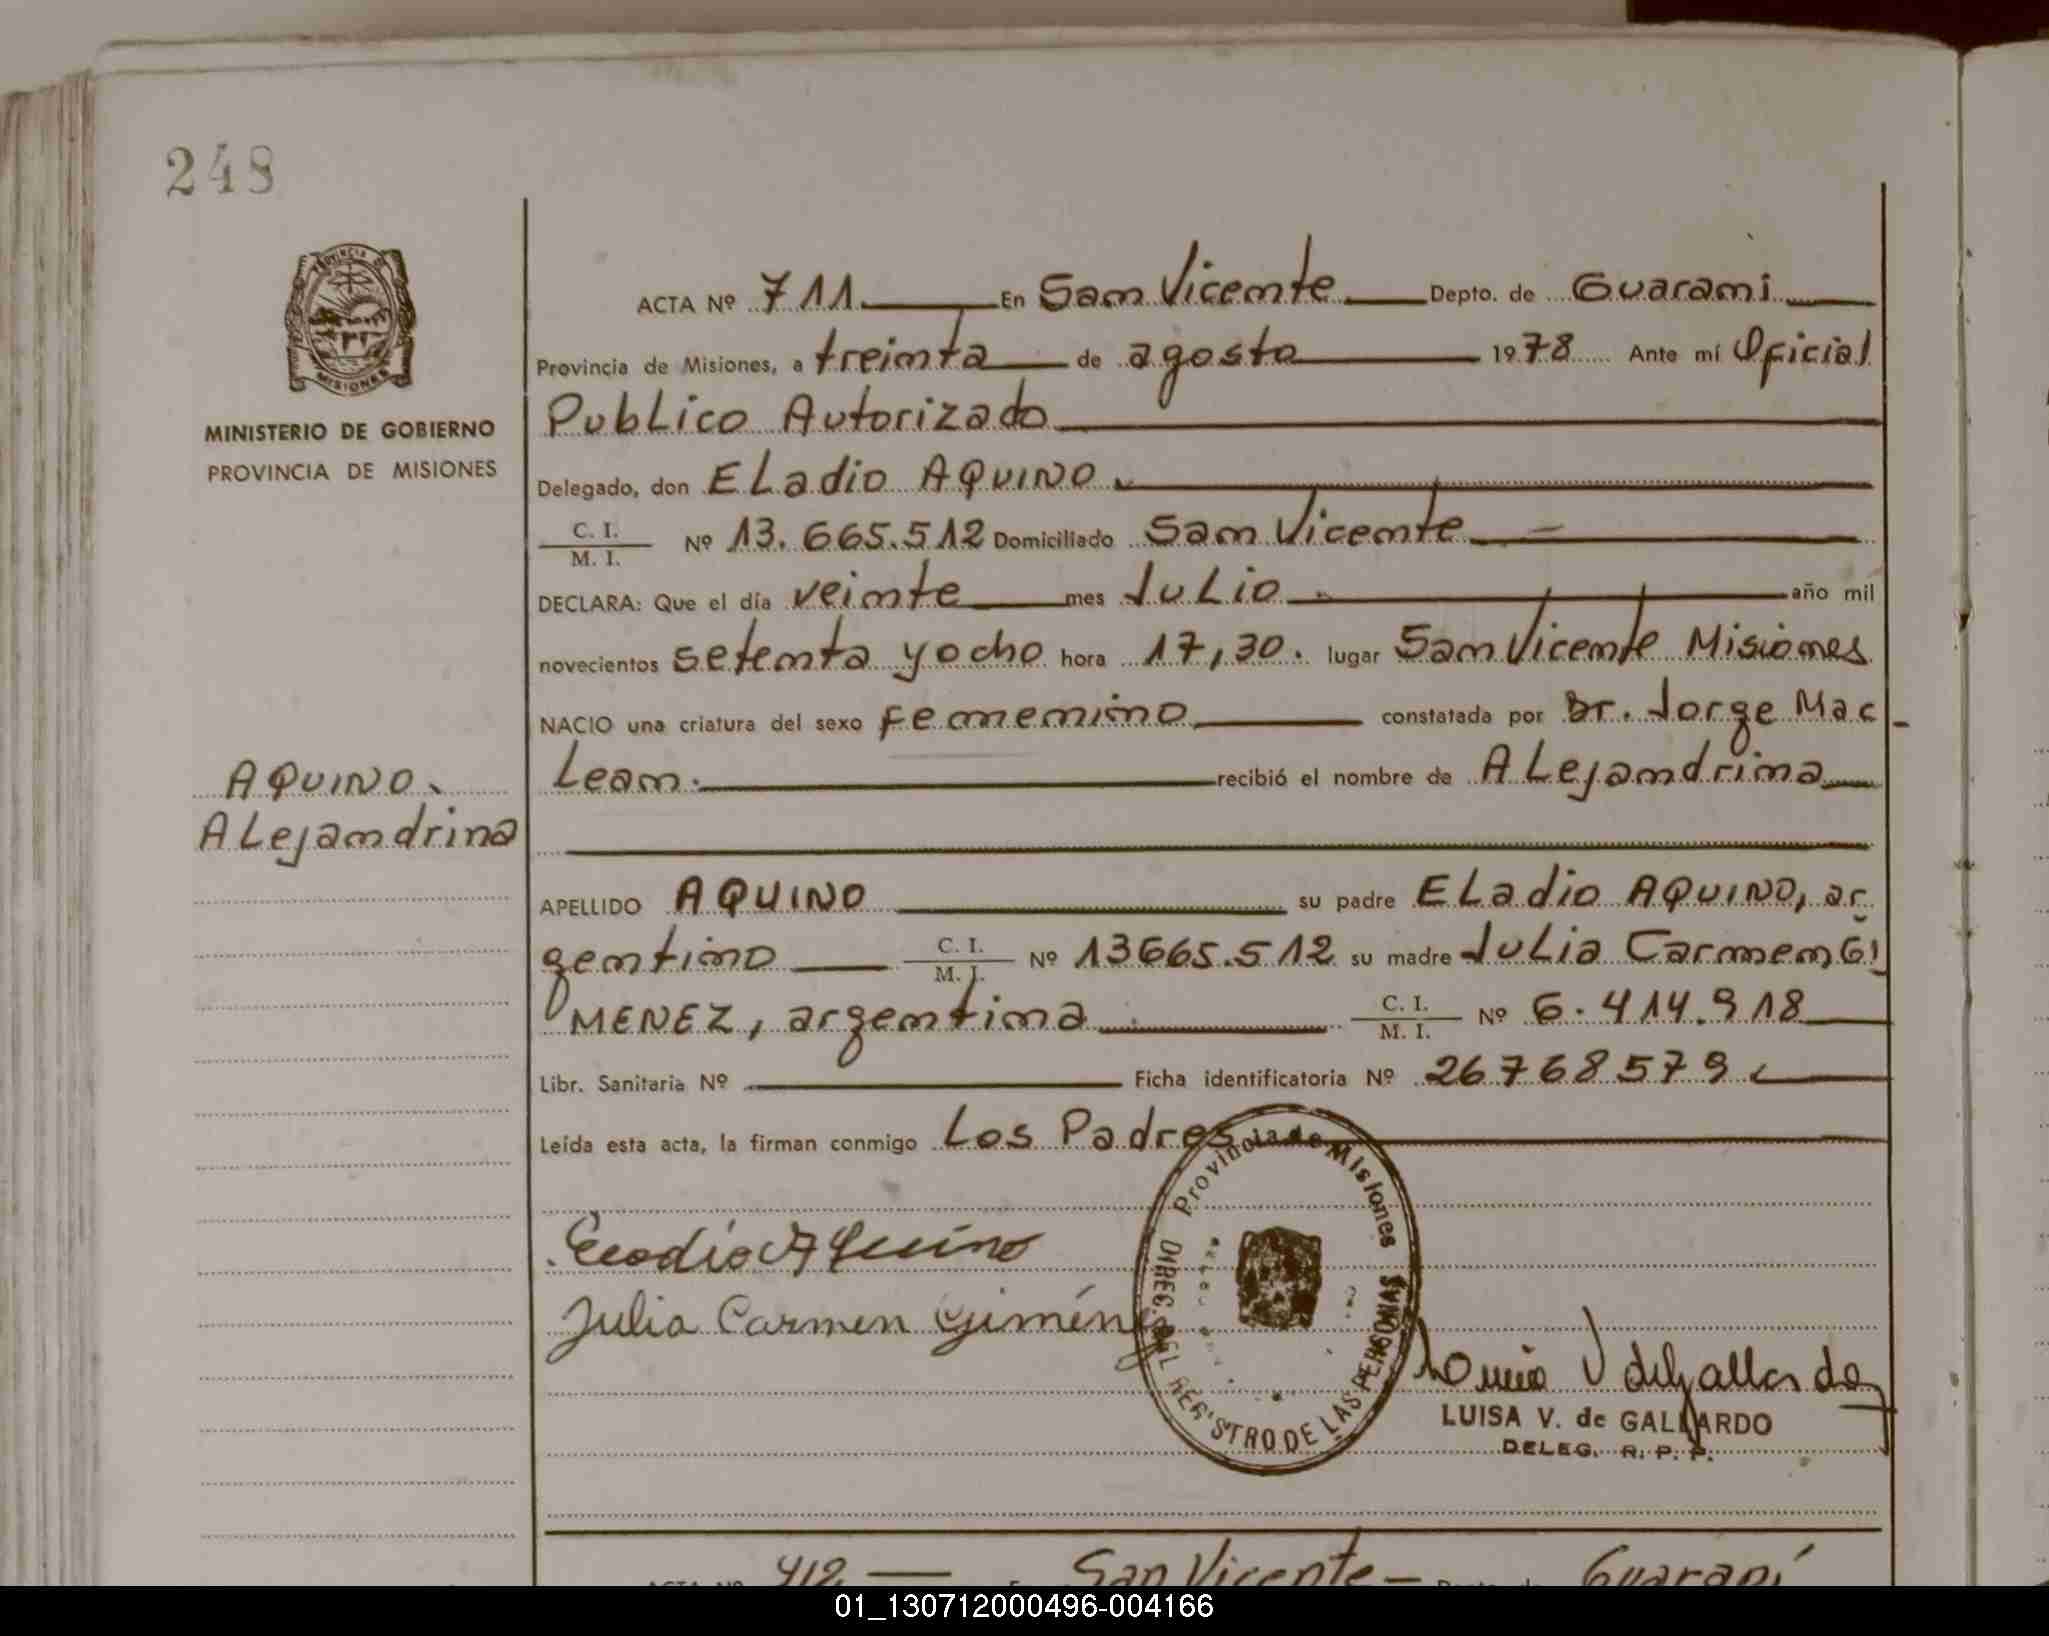 248
PROVINCIA DE
MISIONES
MINISTERIO DE GOBIERNO
PROVINCIA DE MISIONES
AQUINO.
ALejandrina
ACTA Nº 711 En San Vicente Depto. de Guarani
Provincia de Misiones, a treinta de agosto 1978 Ante mí Oficial
PubLico Autorizado
Delegado, don ELadio AQUINO
C. I.
M. I. Nº 13.665.512 Domiciliado San Vicente
DECLARA: Que el día veinte mes JuLio año mil
novecientos setenta y ocho hora 17,30. lugar San Vicente Misiones
NACIO una criatura del sexo femenino constatada por Dr. Jorge Mac-
Lean. recibió el nombre de ALejandrina
APELLIDO AQUINO su padre ELadio AQUINO, ar
gentino C. I.
M. I. Nº 13665.512 su madre JuLia Carmen GI
MENEZ, argentina C. I.
M. I. Nº 6.414.918
Libr. Sanitaria Nº Ficha identificatoria Nº 26768579
Leída esta acta, la firman conmigo Los Padres
Provincia de Misiones
DIREC. DEL REGISTRO DE LAS PERSONAS
Eladio Aquino
Julia Carmen Giménez
Luisa V de Gallardo
LUISA V. de GALLARDO
DELEG. R. P. P.
ACTA Nº 712 En San Vicente Depto. de Guaraní
01_130712000496-004166